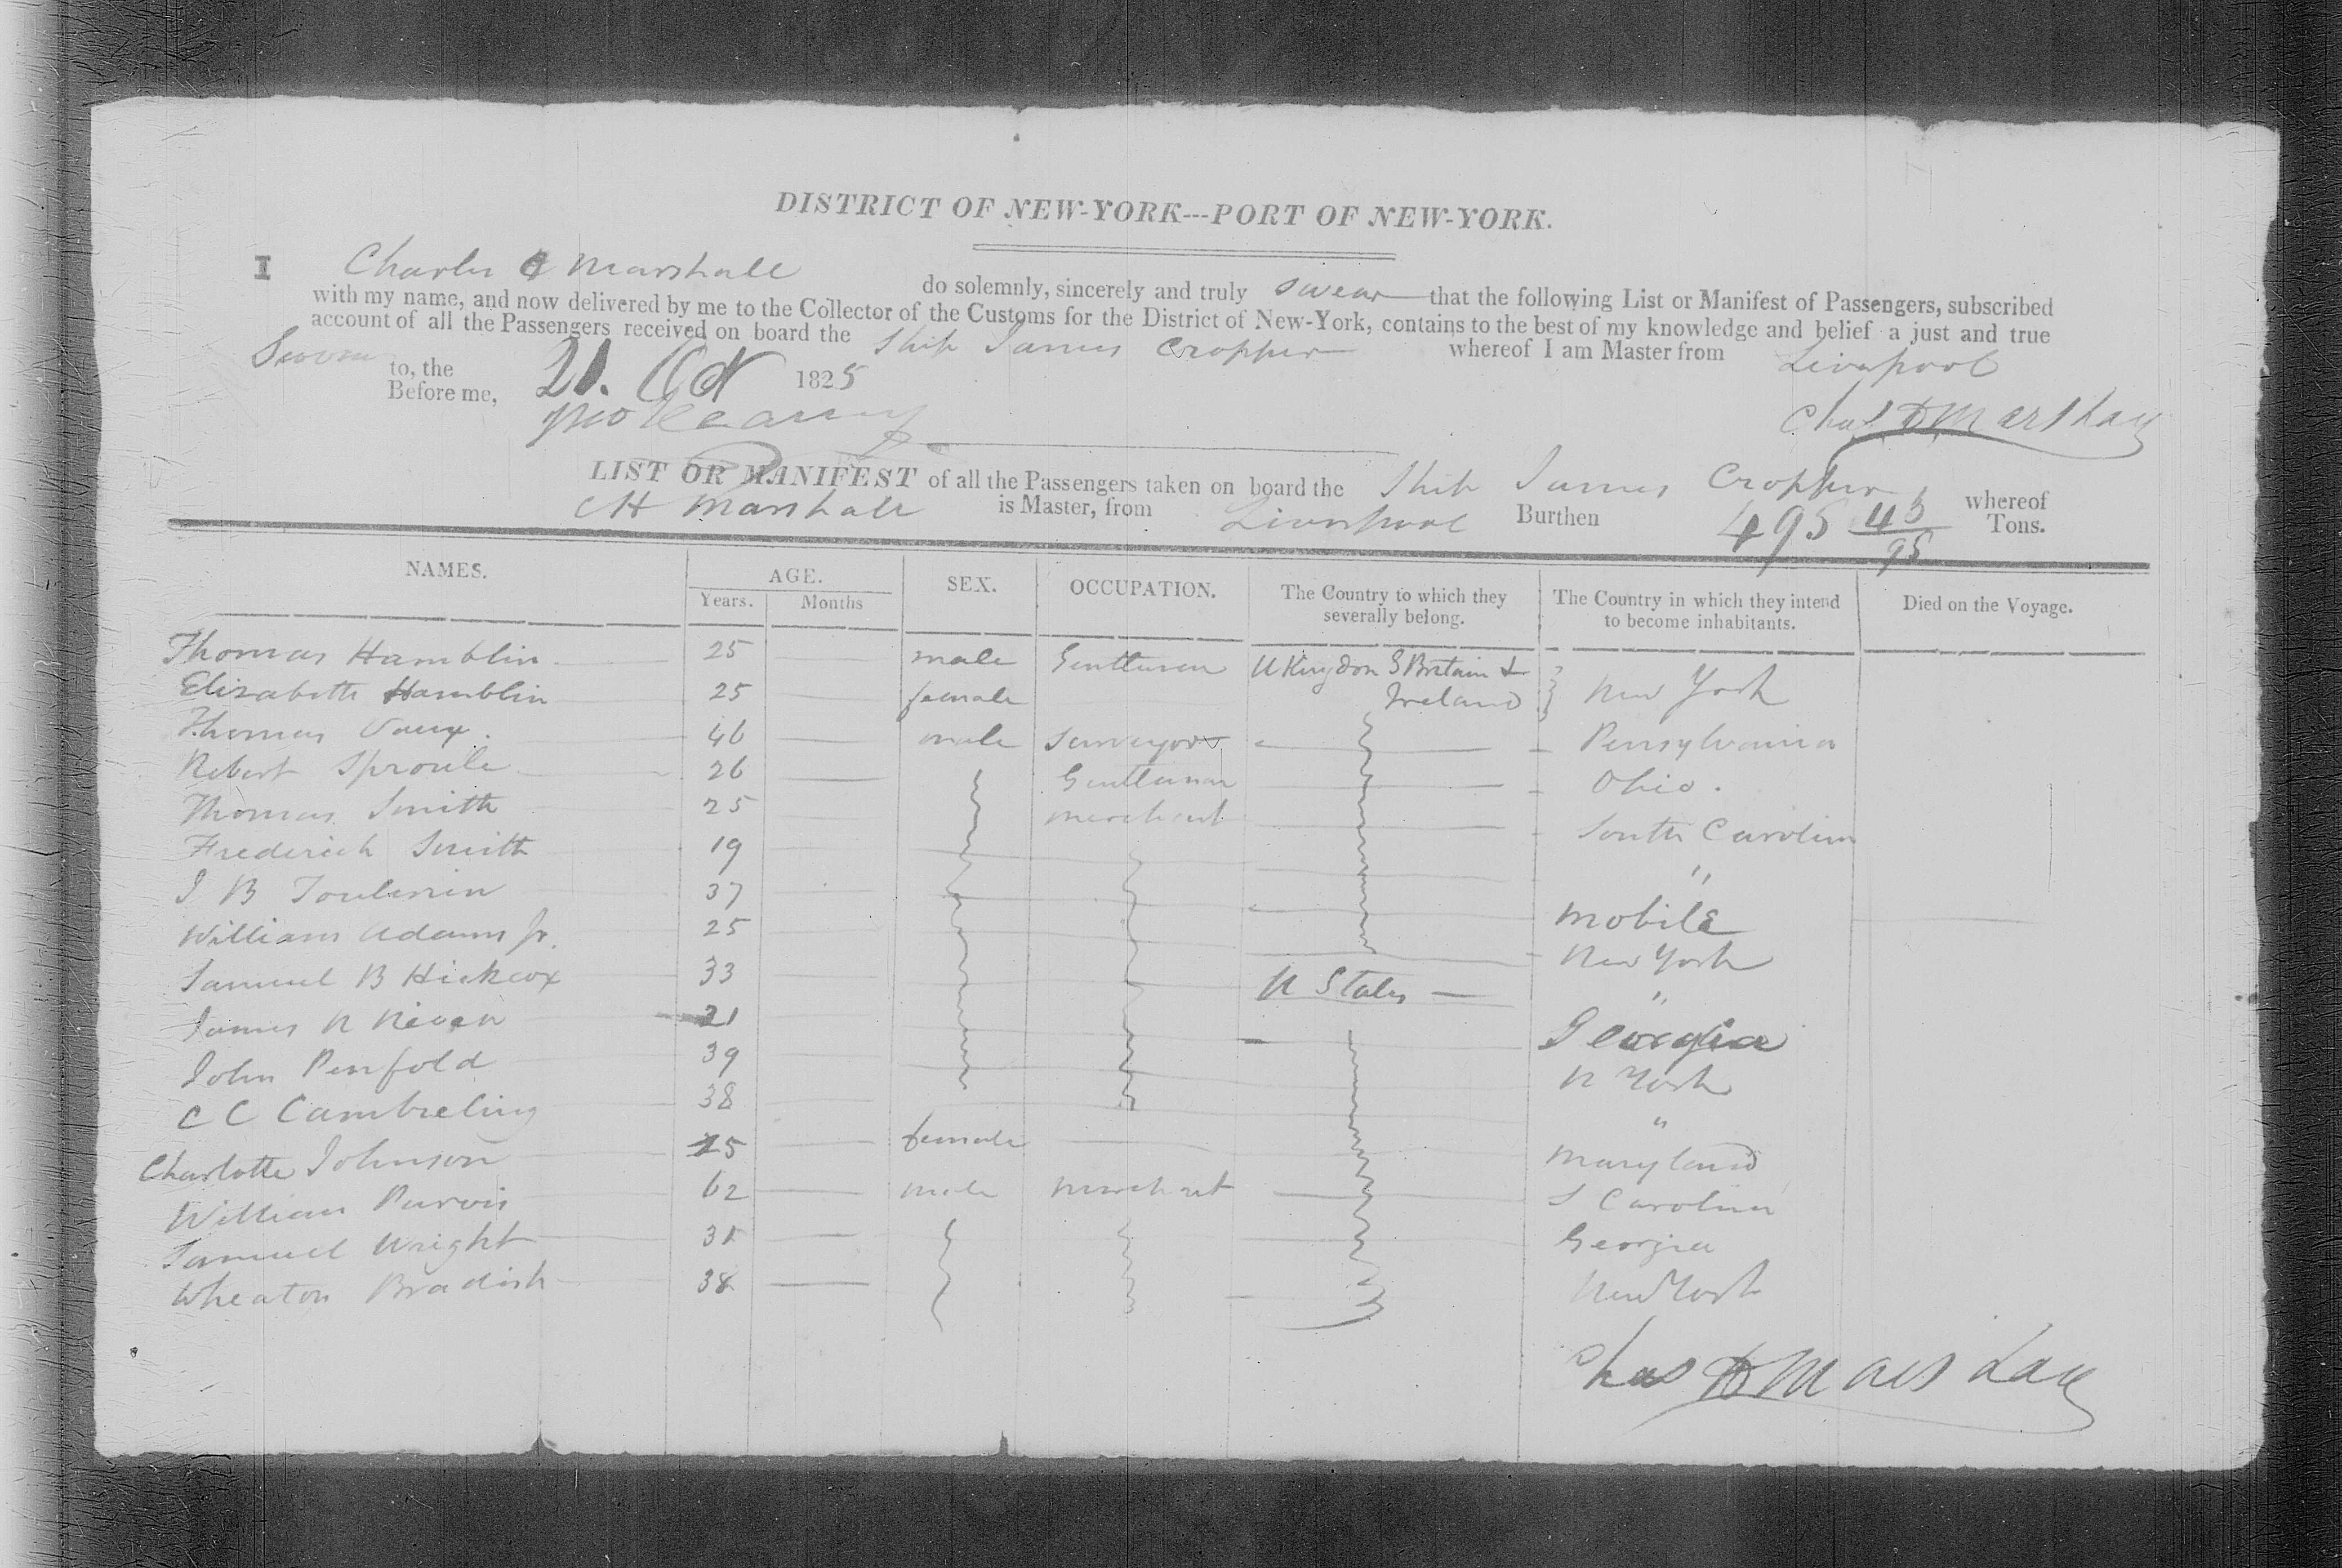 DISTRICT OF NEW-YORK---PORT OF NEW-YORK.
I Charles H Marshall do solemnly, sincerely and truly swear that the following List or Manifest of Passengers, subscribed
with my name, and now delivered by me to the Collector of the Customs for the District of New-York, contains to the best of my knowledge and belief a just and true
account of all the Passengers received on board the Ship James Cropper whereof I am Master from Liverpool
Sworn to, the 21. Oct 1825
Before me,
Chas H Marshall
LIST OR MANIFEST of all the Passengers taken on board the Ship James Cropper whereof
CH Marshall is Master, from Liverpool Burthen 495 43/95 Tons.
NAMES. AGE. SEX. OCCUPATION. The Country to which they severally belong. The Country in which they intend to become inhabitants. Died on the Voyage.
Years. Months
Thomas Hamblin 25 male Gentlemen U Kingdon G Britain &
Elizabeth Hamblin 25 female Ireland New York
Thomas Vaux. 46 male Surveyor Pensylvania
Robert Sproule 26 Gentleman Ohio.
Thomas Smith 25 merchant South Carolina
Frederick Smith 19 "
J B Toulmin 37 Mobile
William Adams Jr. 25 New York
Samuel B Hickcox 33 U States "
James N Niven 21 Georgia
John Penfold 39 N York
C C Cambreling 38 "
Charlotte Johnson 25 female Maryland
William Purvis 62 male merchant S Carolina
Samuel Wright 31 Georgia
Wheaton Bradish 38 New York
Chas H Marshall